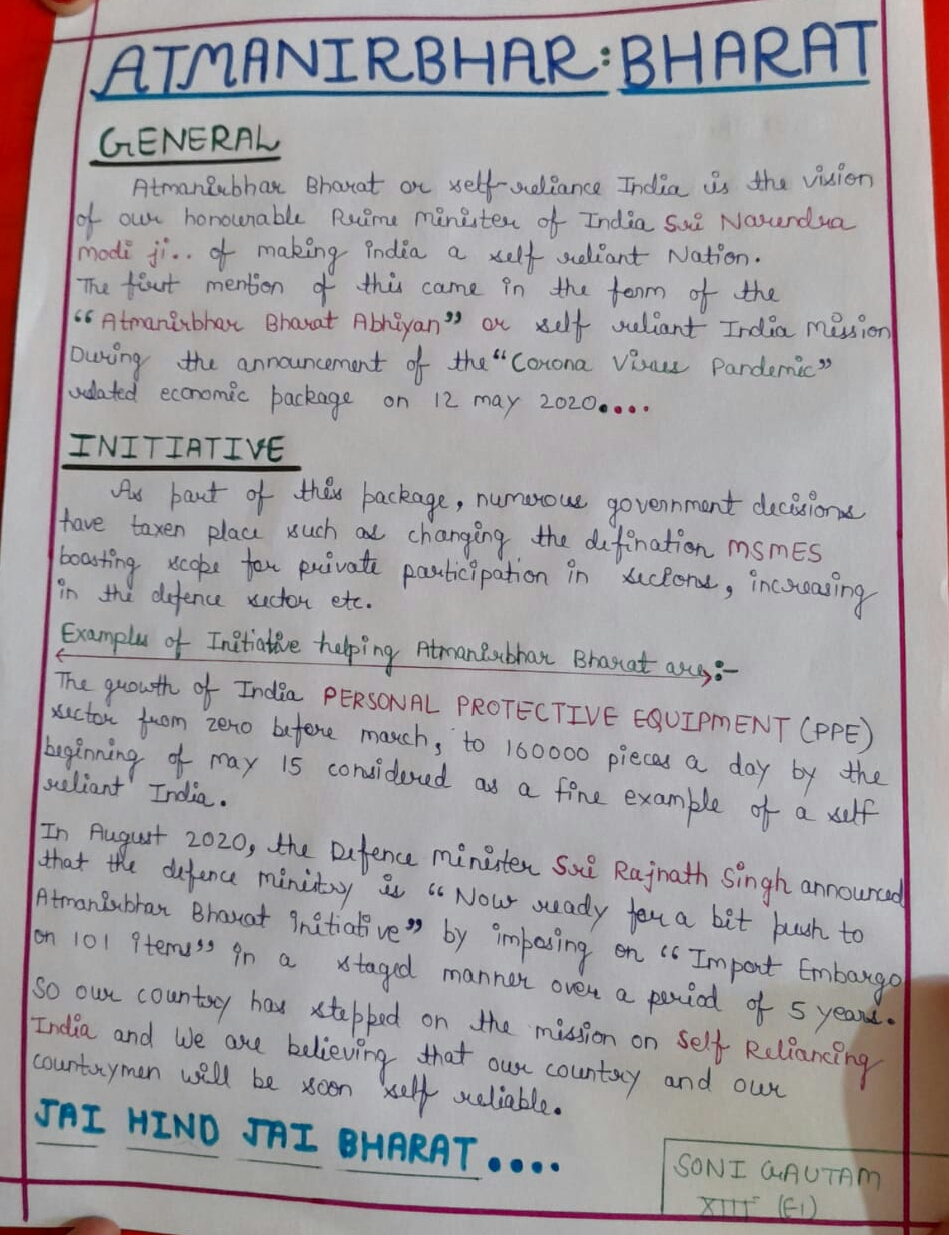 ATMANIRBHAR : BHARAT
GENERAL
Atmanirbhar Bharat or self-reliance India is the vision
of our honourable Prime Minister of India Sri Narendra
Modi ji.. of making india a self reliant Nation.
The first mention of this came in the form of the
“Atmanirbhar Bharat Abhiyan” or self reliant India Mission
During the announcement of the “Corona Virus Pandemic”
related economic package on 12 may 2020....
INITIATIVE
As part of this package, numerous government decisions
have taxen place such as changing the defination MSMES
boasting scope for private participation in sectors, increasing
in the defence sector etc.
Examples of Initiative helping Atmanirbhar Bharat are:-
The growth of India PERSONAL PROTECTIVE EQUIPMENT (PPE)
sector from zero before march, to 160000 pieces a day by the
beginning of May 15 considered as a fine example of a self
reliant India.
In August 2020, the Defence Minister Sri Rajnath Singh announced
that the defence ministry is “Now ready for a bit push to
Atmanirbhar Bharat initiative” by imposing on “Import Embargo
on 101 items” in a staged manner over a period of 5 years.
So our country has stepped on the mission on Self Reliancing
India and We are believing that our country and our
countrymen will be soon self reliable.
JAI HIND JAI BHARAT....
SONI GAUTAM
XIII (E1)